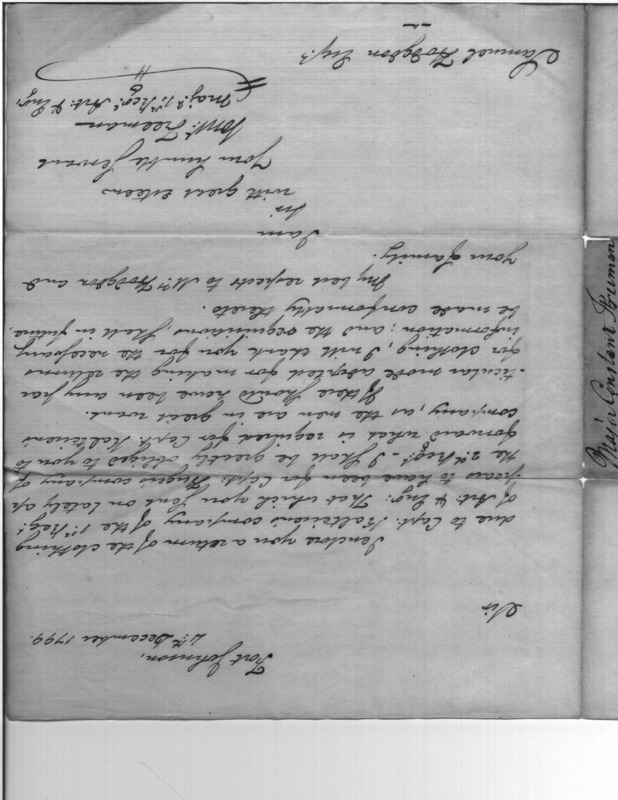 Fort Johnson,
4th December 1799.
Sir
I enclose you a return of the clothing
due to Capt. Kalteisen's company of the 1st Regt.
of Art: & Eng: That which you sent on lately ap
pears to have been for Capt. company of
the 2d Regt. I shall be greatly obliged to you to
forward what is required for Capt. Kalteisens
company, as the men are in great want.
If there should have been any par
-ticular mode adopted for making the returns
for clothing, I will thank you for the necessary
information; and the requisitions shall in future
be made conformably thereto.
My best respects to Mrs. Hodgdon and
your family.
I am
Sir
with great esteem
Your humble Servant
Const: Freeman
Maj: 1st Regt. Art: & Eng:
Samuel Hodgdon Esq.
Major Constant Freeman